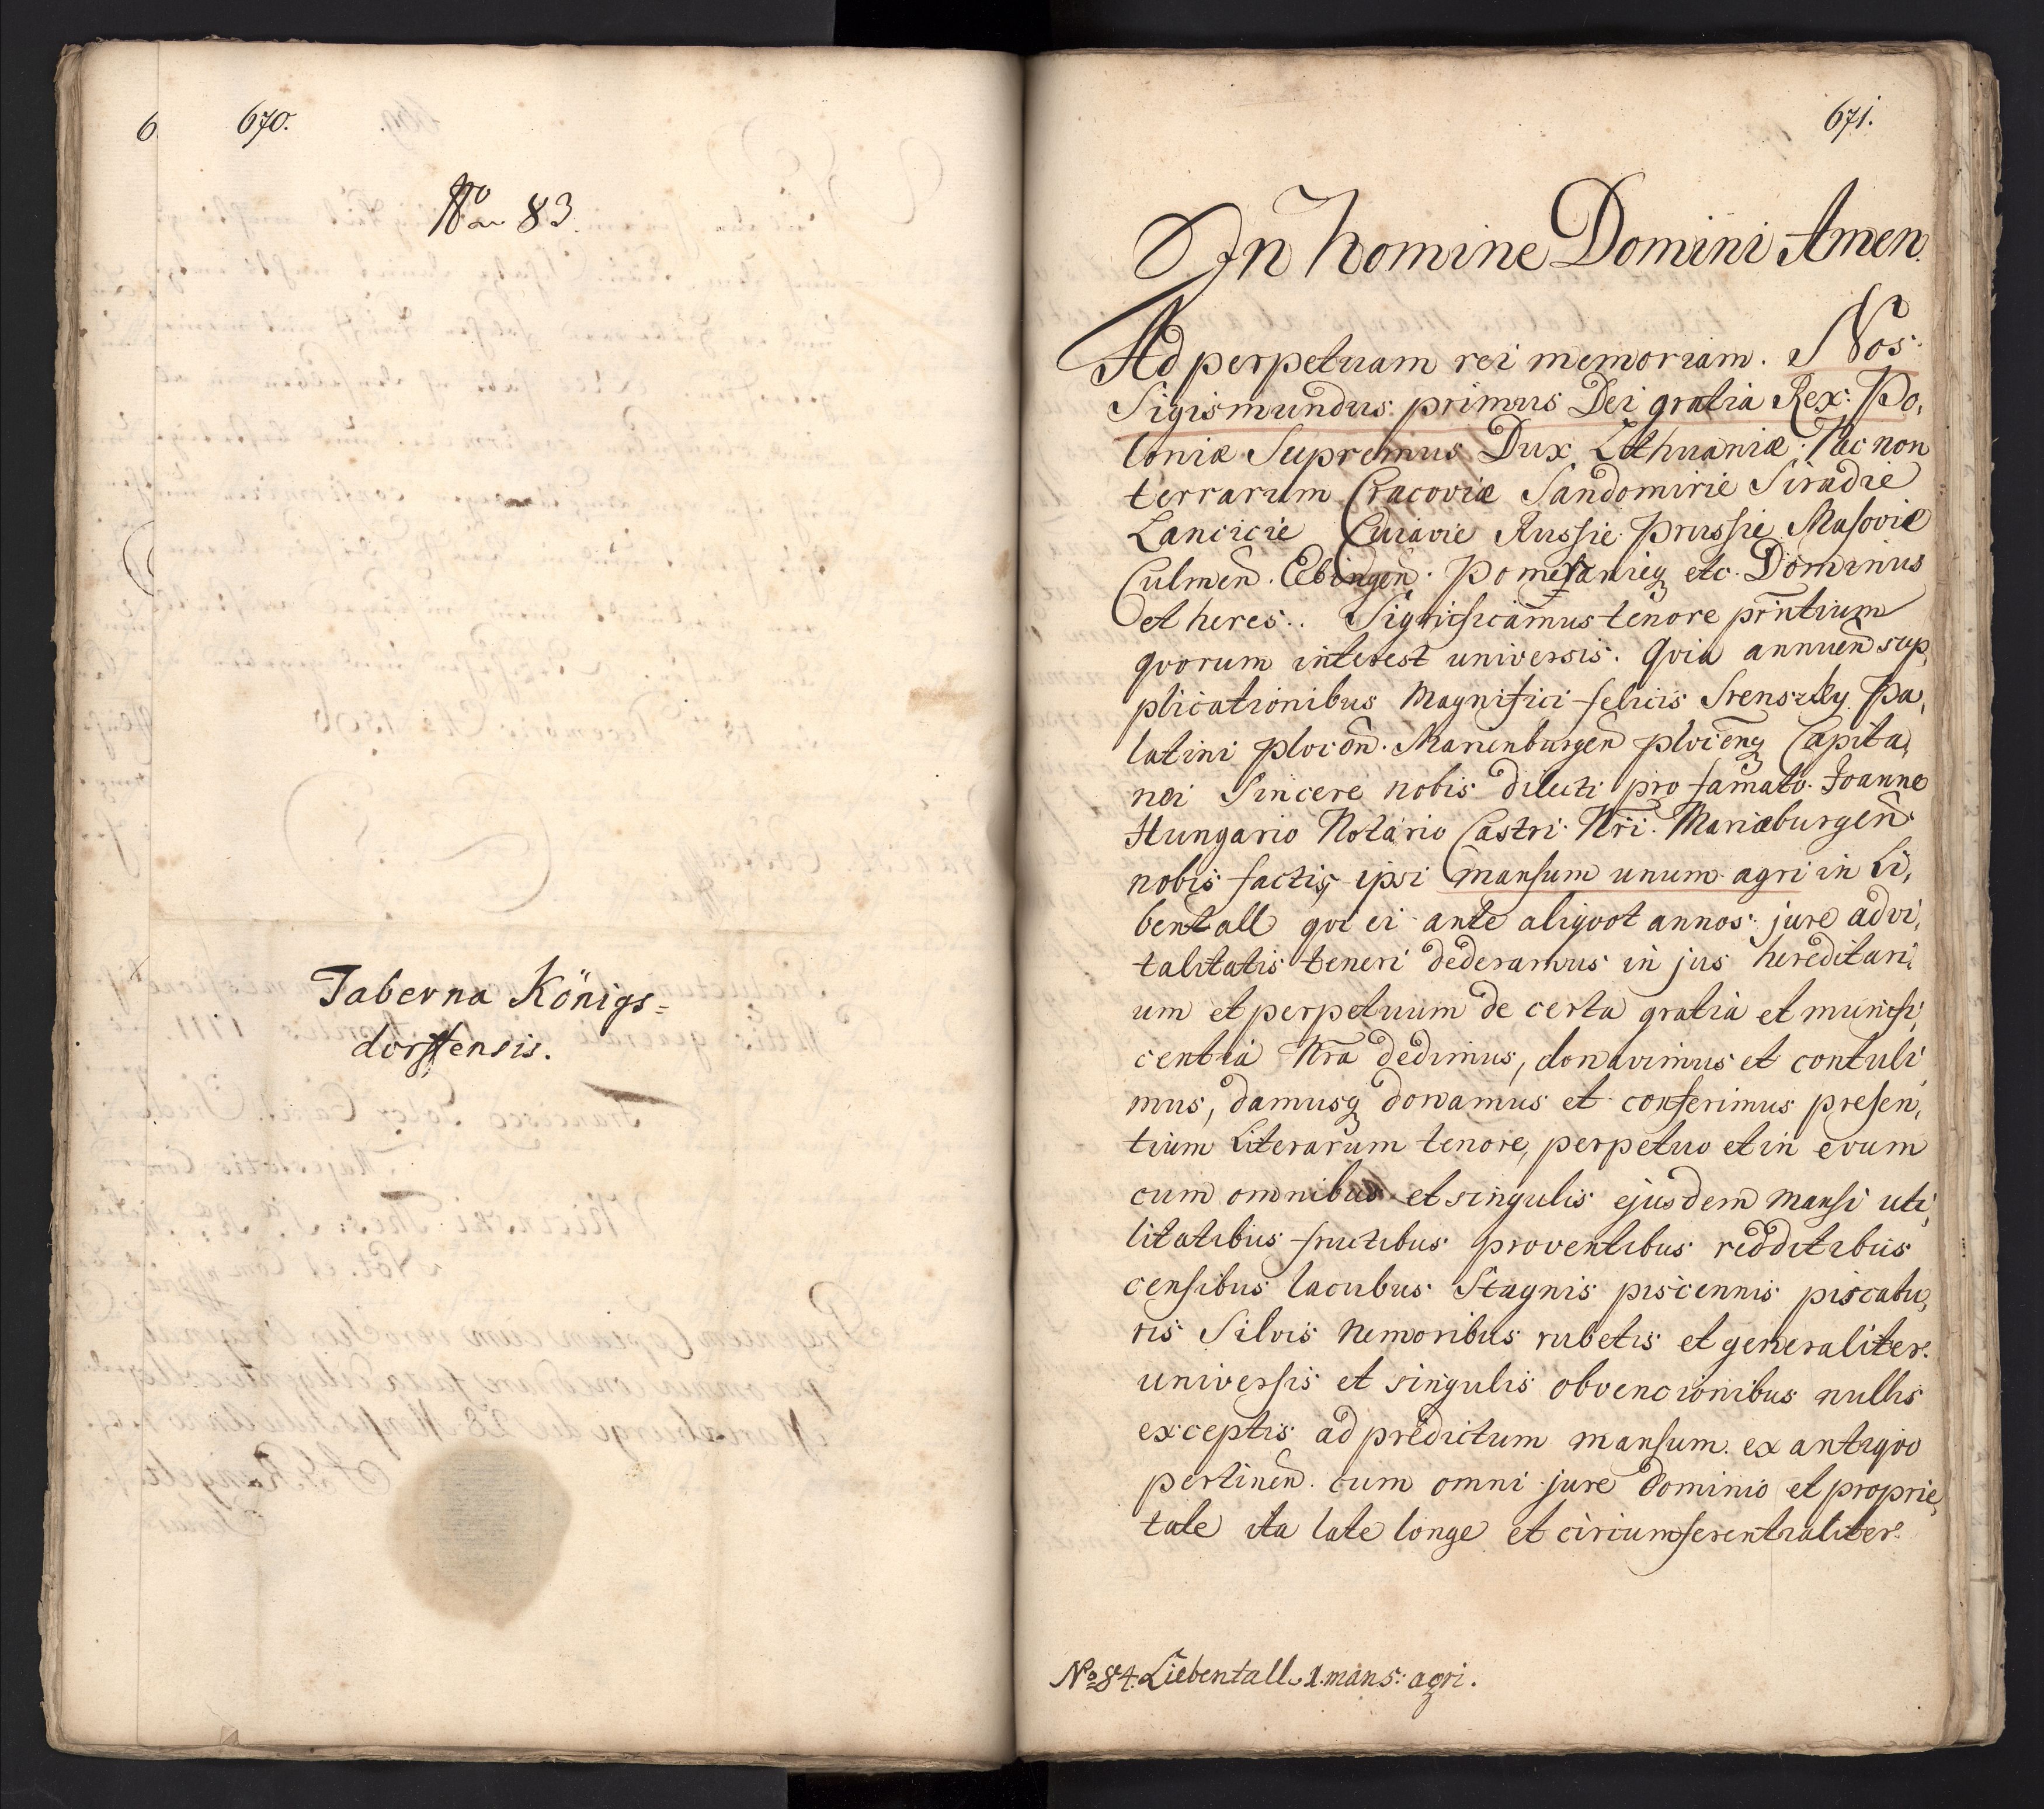 6
670.
No 83.
Taberna Königs=
dorffensis.
671.
In Nomine Domini Amen.
Ad perpetuam rei memoriam. Nos
Sigismundus primus Dei gratia Rex Po,
loniæ Supremus Dux Lithuaniæ Nec non
terrarum Cracoviæ Sandomirie Siradie
Lancicie Cuiavie Russie Prussie Masovie
Culmen̄. Elbingen̄. Pomeraniæq etc. Dominus
et heres. Significamus tenore prn̄tium
qvorum interest universis. Qvia annuen̄ sup,
plicationibus Magnifici felicis Srenszky Pa,
latini plocen̄. Marienburgen̄ plocen̄q Capita,
nei Sincere nobis dilecti pro famato Joanne
Hungario Notario Castri Nr̄i Mariæburgen̄
nobis factis ipsi mansum unum agri in Li,
bentall qvi ei ante aliqvot annos jure advi,
talitatis teneri dederamus in jus hereditari,
um et perpetuum de certa gratia et munifi,
centia Nr̄a dedimus, donavimus et contuli,
mus, damusq donamus et conferimus presen,
tium Literarum tenore, perpetuo et in evum
cum omnibus et singulis ejusdem mansi uti,
litatibus fructibus proventibus redditibus
censibus lacubus Stagnis piscennis piscatu,
ris Silvis nemoribus rubetis et generaliter
universis et singulis obvencionibus nullis
exceptis ad predictum mansum ex antiqvo
pertinen̄. cum omni jure Dominio et proprie,
tate ita late longe et circumferentialiter
No 84. Liebentall 1. mans: agri.